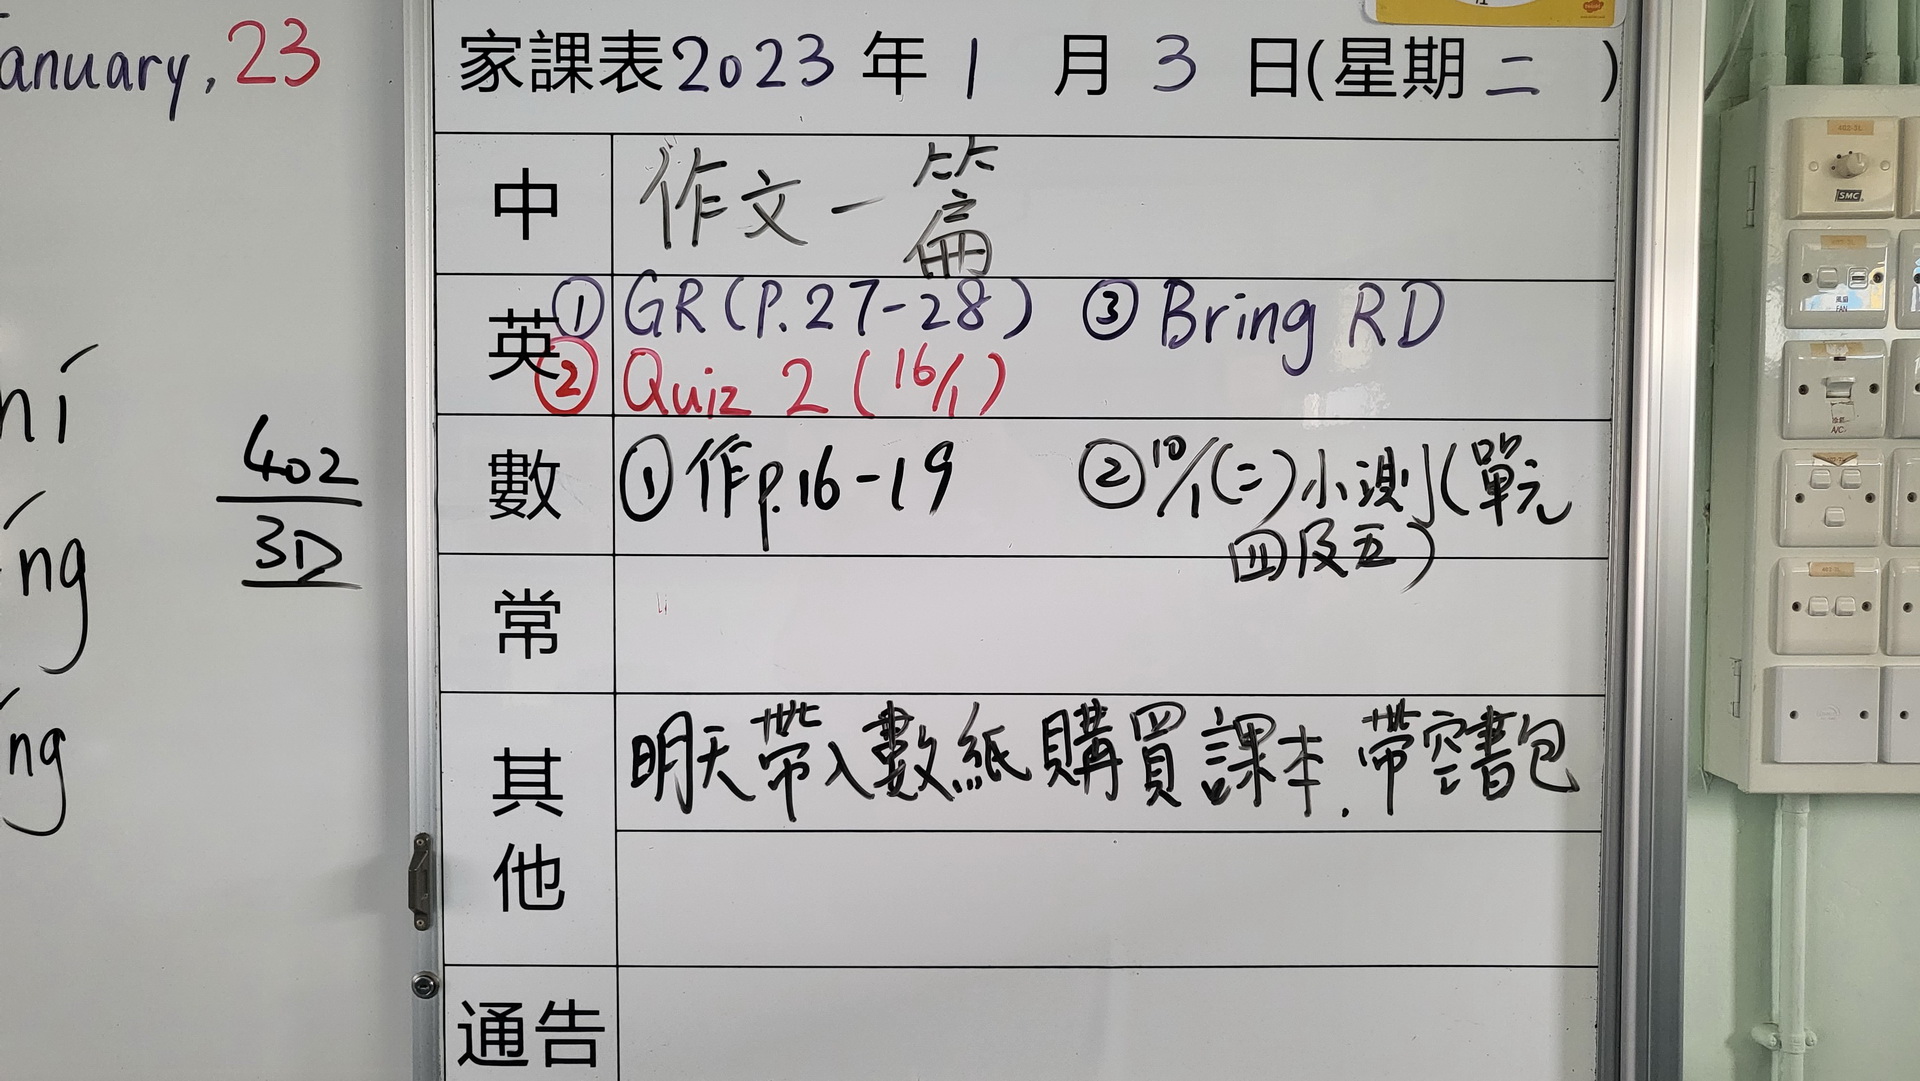 anuary, 23
ní
ng
ng
402
3D
家課表2023年1月3日(星期二)
中
作文一篇
英
① GR (P.27-28) ③ Bring RD
② Quiz 2 (16/1)
數
① 作p.16-19 ② 10/1(二)小測(單元
四及五)
常
其他
明天帶入數紙購買課本.帶空書包
通告
SMC
風扇
FAN
冷氣
A/C